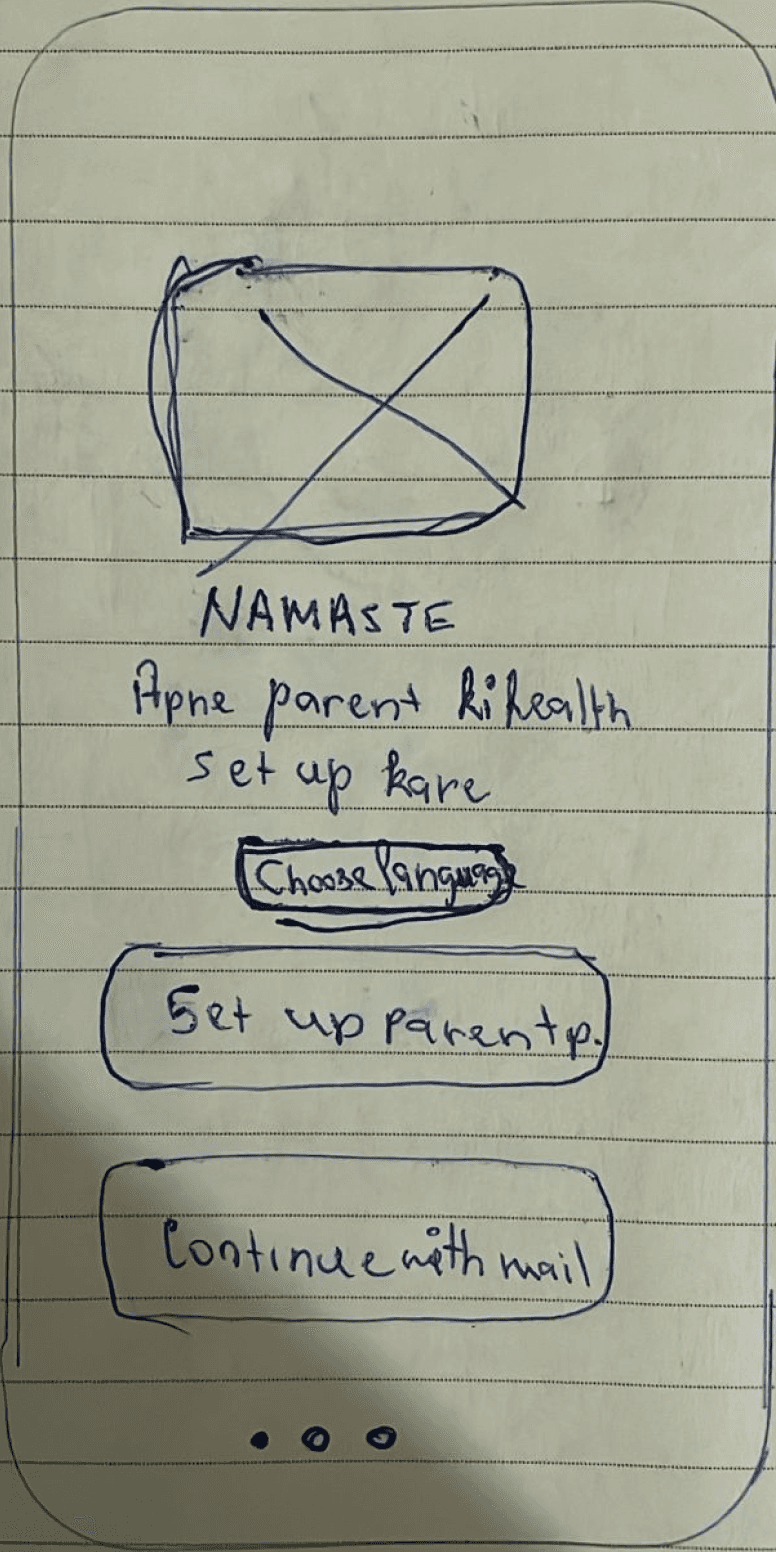 NAMASTE
Apne parent ki health
set up kare
Choose language
Set up parent p.
Continue with mail